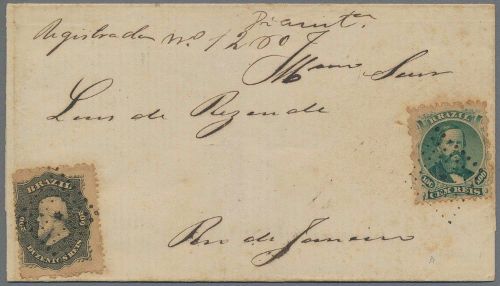 Diamta.
Registrada no. 1260
Illmo Snr
Luis de Rezende
Rio de Janeiro
BRAZIL
100 100
CEM REIS
BRAZIL
200 200
DUZENTOS REIS